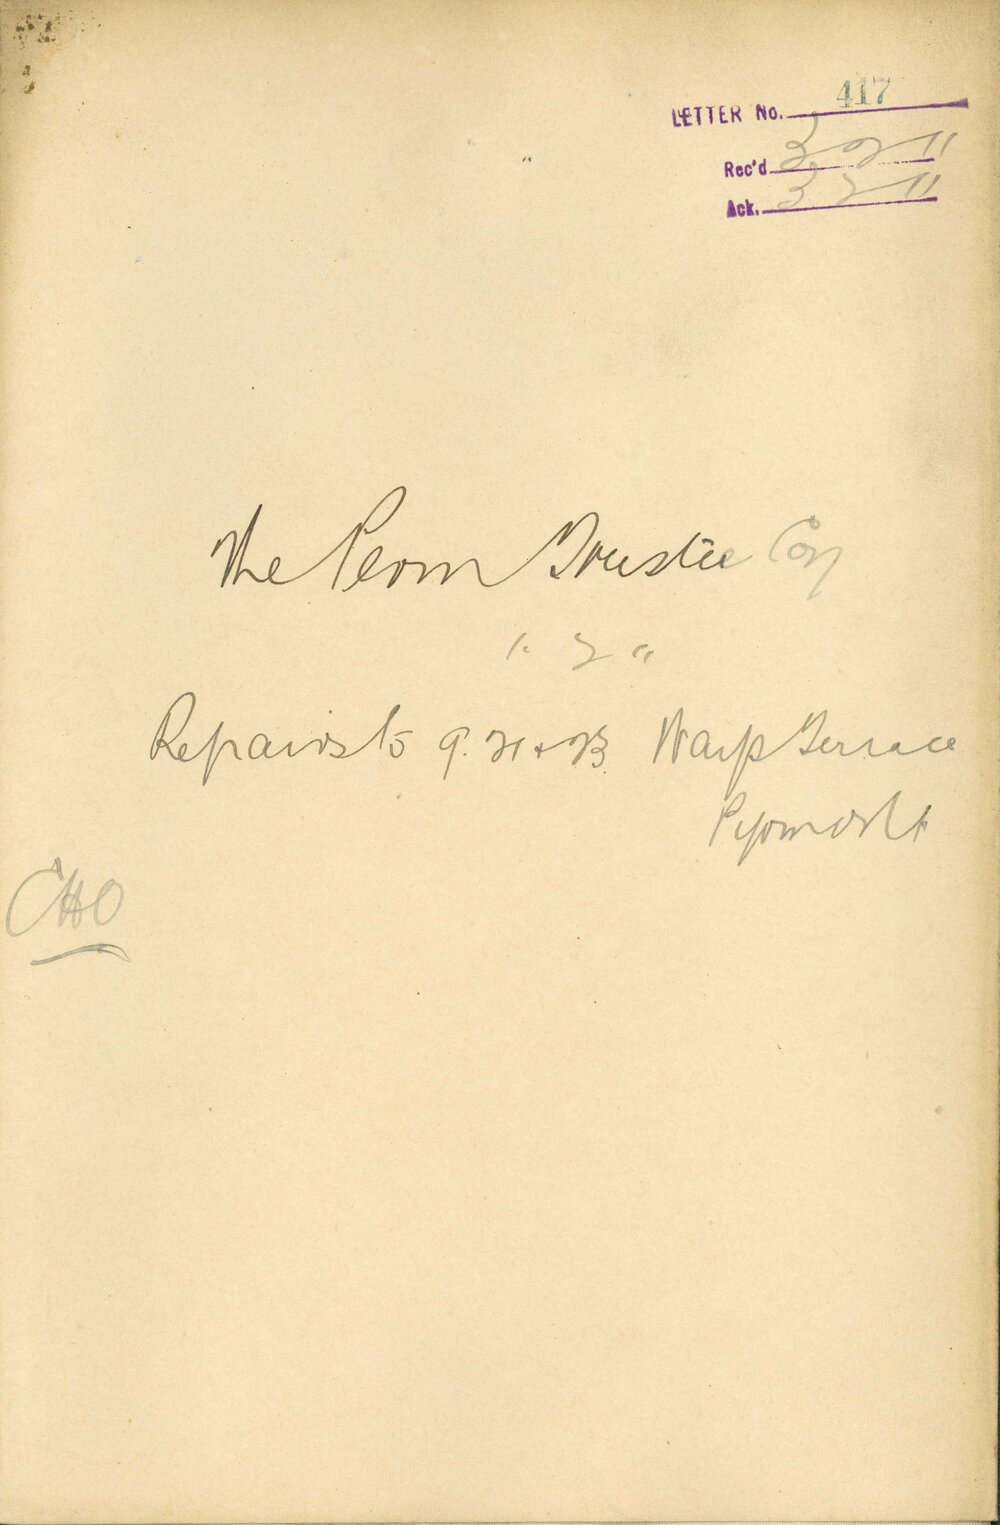 LETTER No. 417
Rec'd 3 2 11
Ack. 3 2 11
The Perm Trustee Coy
" 2 "
Repairs to 9. 21 + 23 Warp Terrace
Plymouth
CHO